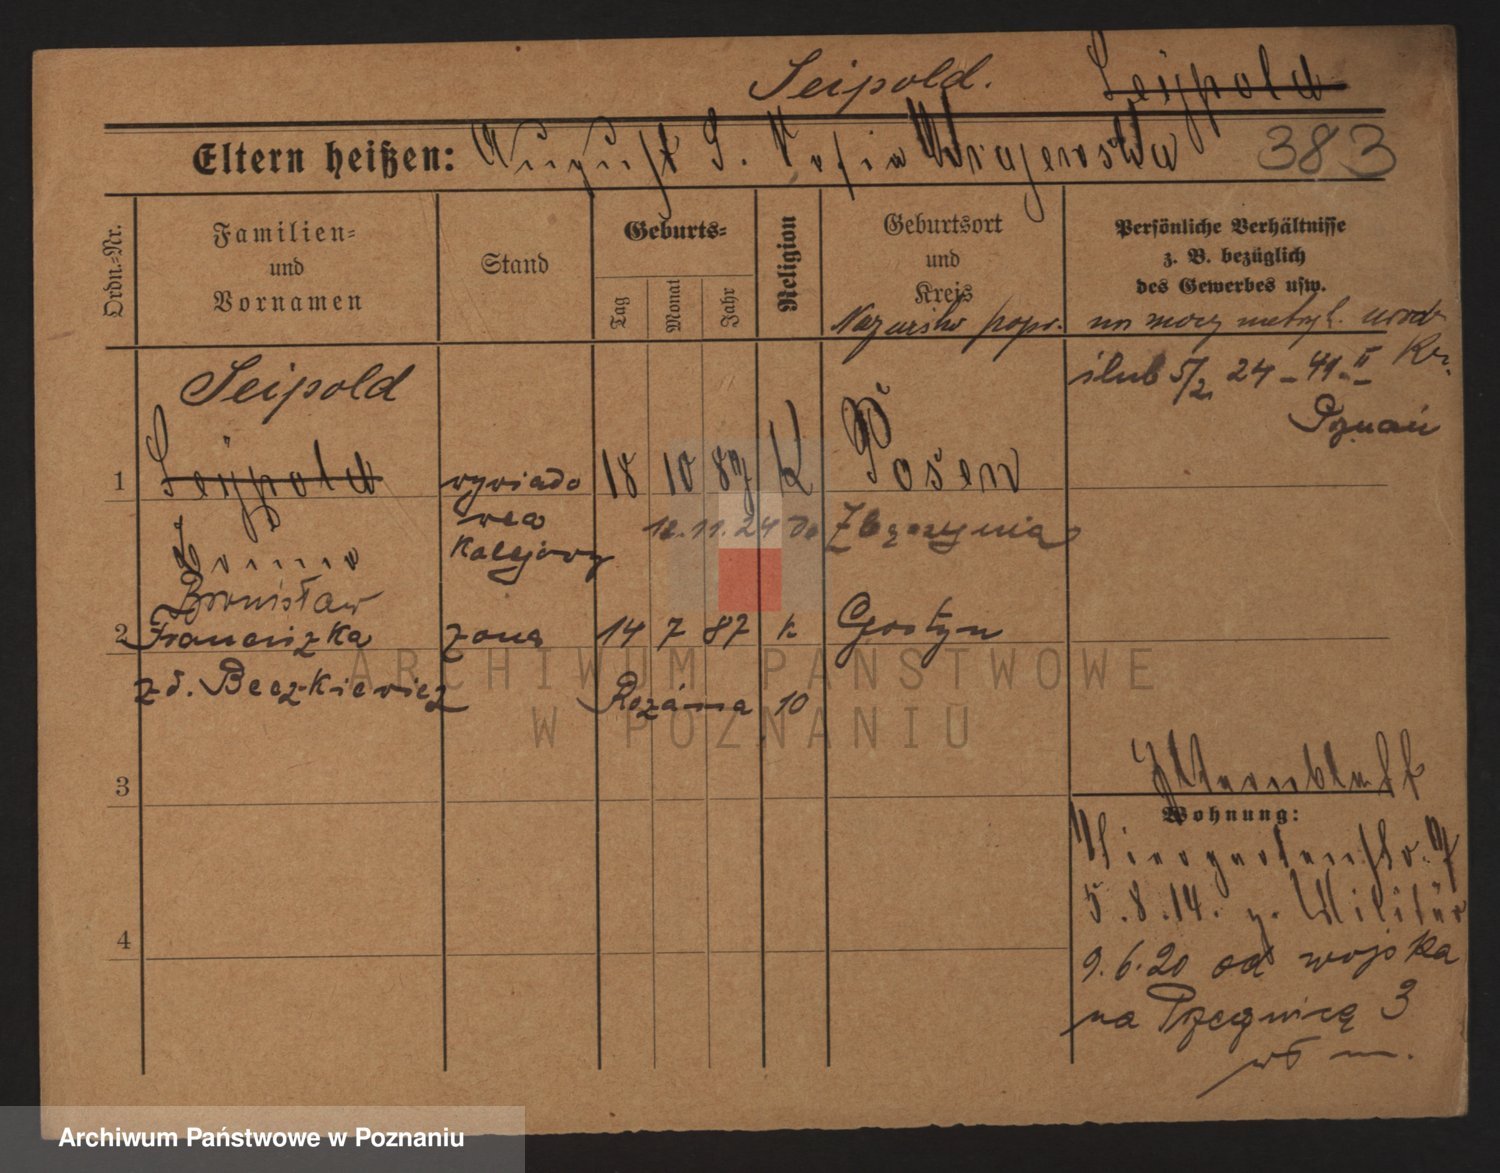 Seipold. Leÿpold
Eltern heißen: August S. Sofia Krajewska 383
Ordn.-Nr.
Familien-
und
Vornamen
Stand
Geburts-
Tag
Monat
Jahr
Religion
Geburtsort
und
Kreis
Persönliche Verhältnisse
z. B. bezüglich
des Gewerbes usw.
Nazwisko popr. na mocy metryk. urodz.
ślub 5/2 24 - 41 - II
Poznań
Seipold
1 Leÿpold wywiado 18 10 87 K Posen
wca 12.11.24 do Zbąszynia
kolejowy
Bronisław
2 Franciszka żona 14 7 87 k Gostyn
z d. Beczkiewicz Rozalia 10
ARCHIWUM PAŃSTWOWE
W POZNANIU
3
Wohnung:
Tiergartenstr.
5.8.14. z. Militär
4
9.6.20 od wojska
na Przecznicę 3
Archiwum Państwowe w Poznaniu